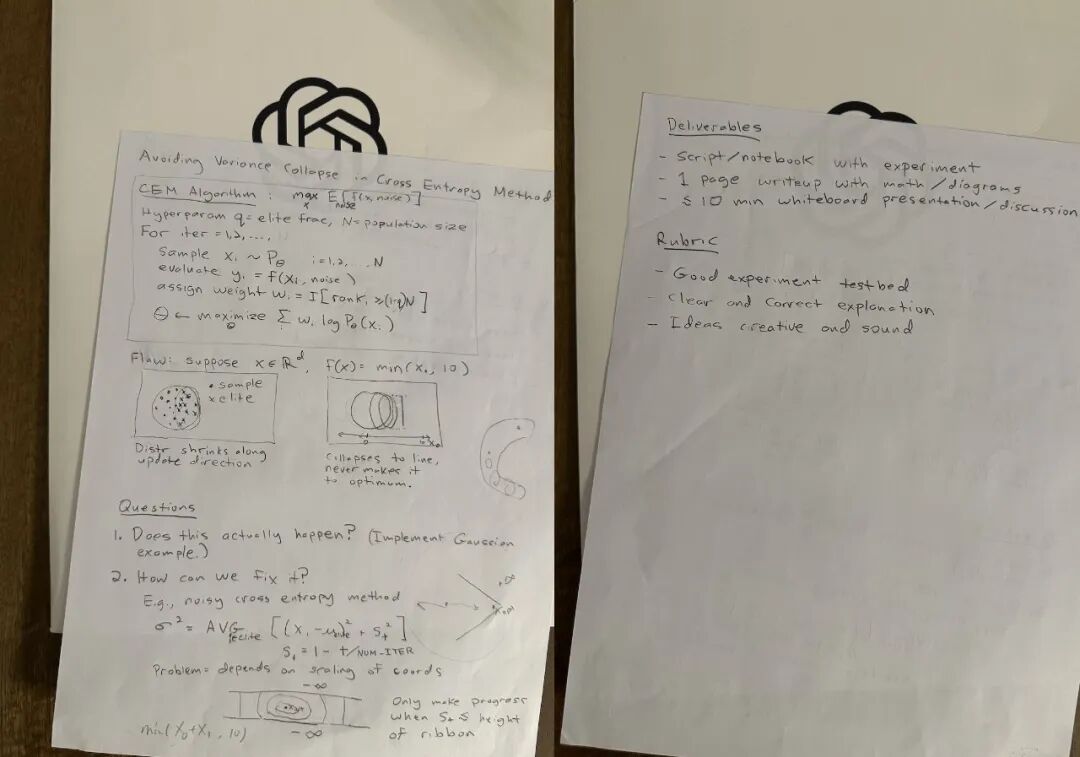 Avoiding Variance Collapse in Cross Entropy Method
CEM Algorithm : max_x E_noise[f(x, noise)]
Hyperparam q = elite frac, N = population size
For iter = 1,2,...,
Sample x_i ~ P_θ i=1,2,...N
evaluate y_i = f(x_i, noise)
assign weight w_i = I[rank_i ≥ (1-q)N]
θ ← maximize_θ Σ w_i log P_θ(x_i)
Flaw: suppose x ∈ ℝ^d, f(x) = min(x_0, 10)
• sample
x elite
Distr shrinks along
update direction
0
x_0
Collapses to line,
never makes it
to optimum.
Questions
1. Does this actually happen? (Implement Gaussian
example.)
2. How can we fix it?
E.g., noisy cross entropy method
σ² = AVG_{i∈elite} [(x_i - μ)² + S_t²]
S_t = 1 - t/NUM-ITER
Problem = depends on scaling of coords
-∞
-∞
min(x_0+x_1, 10)
Only make progress
when S_t ≤ height
of ribbon
Deliverables
- Script/notebook with experiment
- 1 page writeup with math/diagrams
- ≤ 10 min whiteboard presentation/discussion
Rubric
- Good experiment testbed
- Clear and correct explanation
- Ideas creative and sound